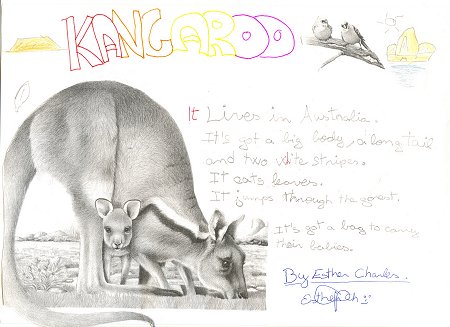 KANGAROO
It Lives in Australia.
It's got a big body, a long tail
and two white stripes.
It eats leaves.
It jumps through the forest.
It's got a bag to carry
their babies.
By Esther Charles.